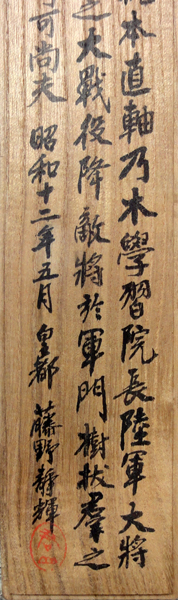 本直軸乃木學習院長陸軍大將
之大戰役降敵將於軍門樹拔羣之
可尚矣 昭和十二年五月 皇都 藤野靜輝